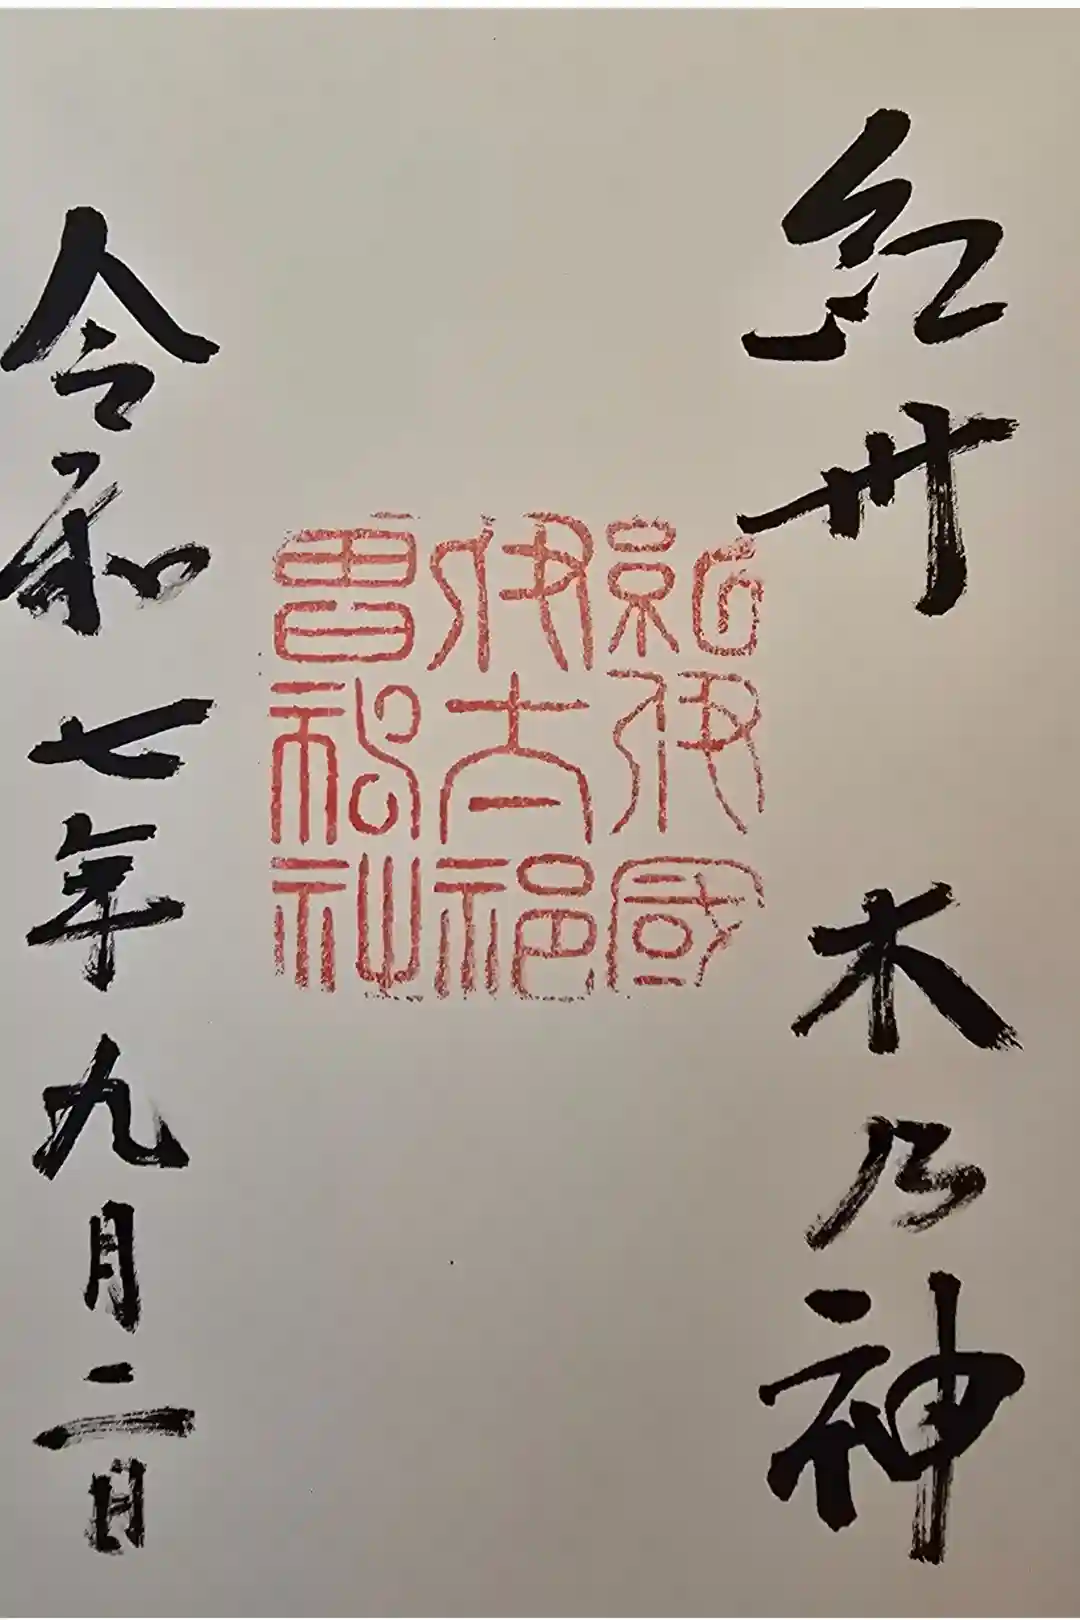 紀州 木乃神
紀伊國
伊太祁
曾神社
令和七年九月二日